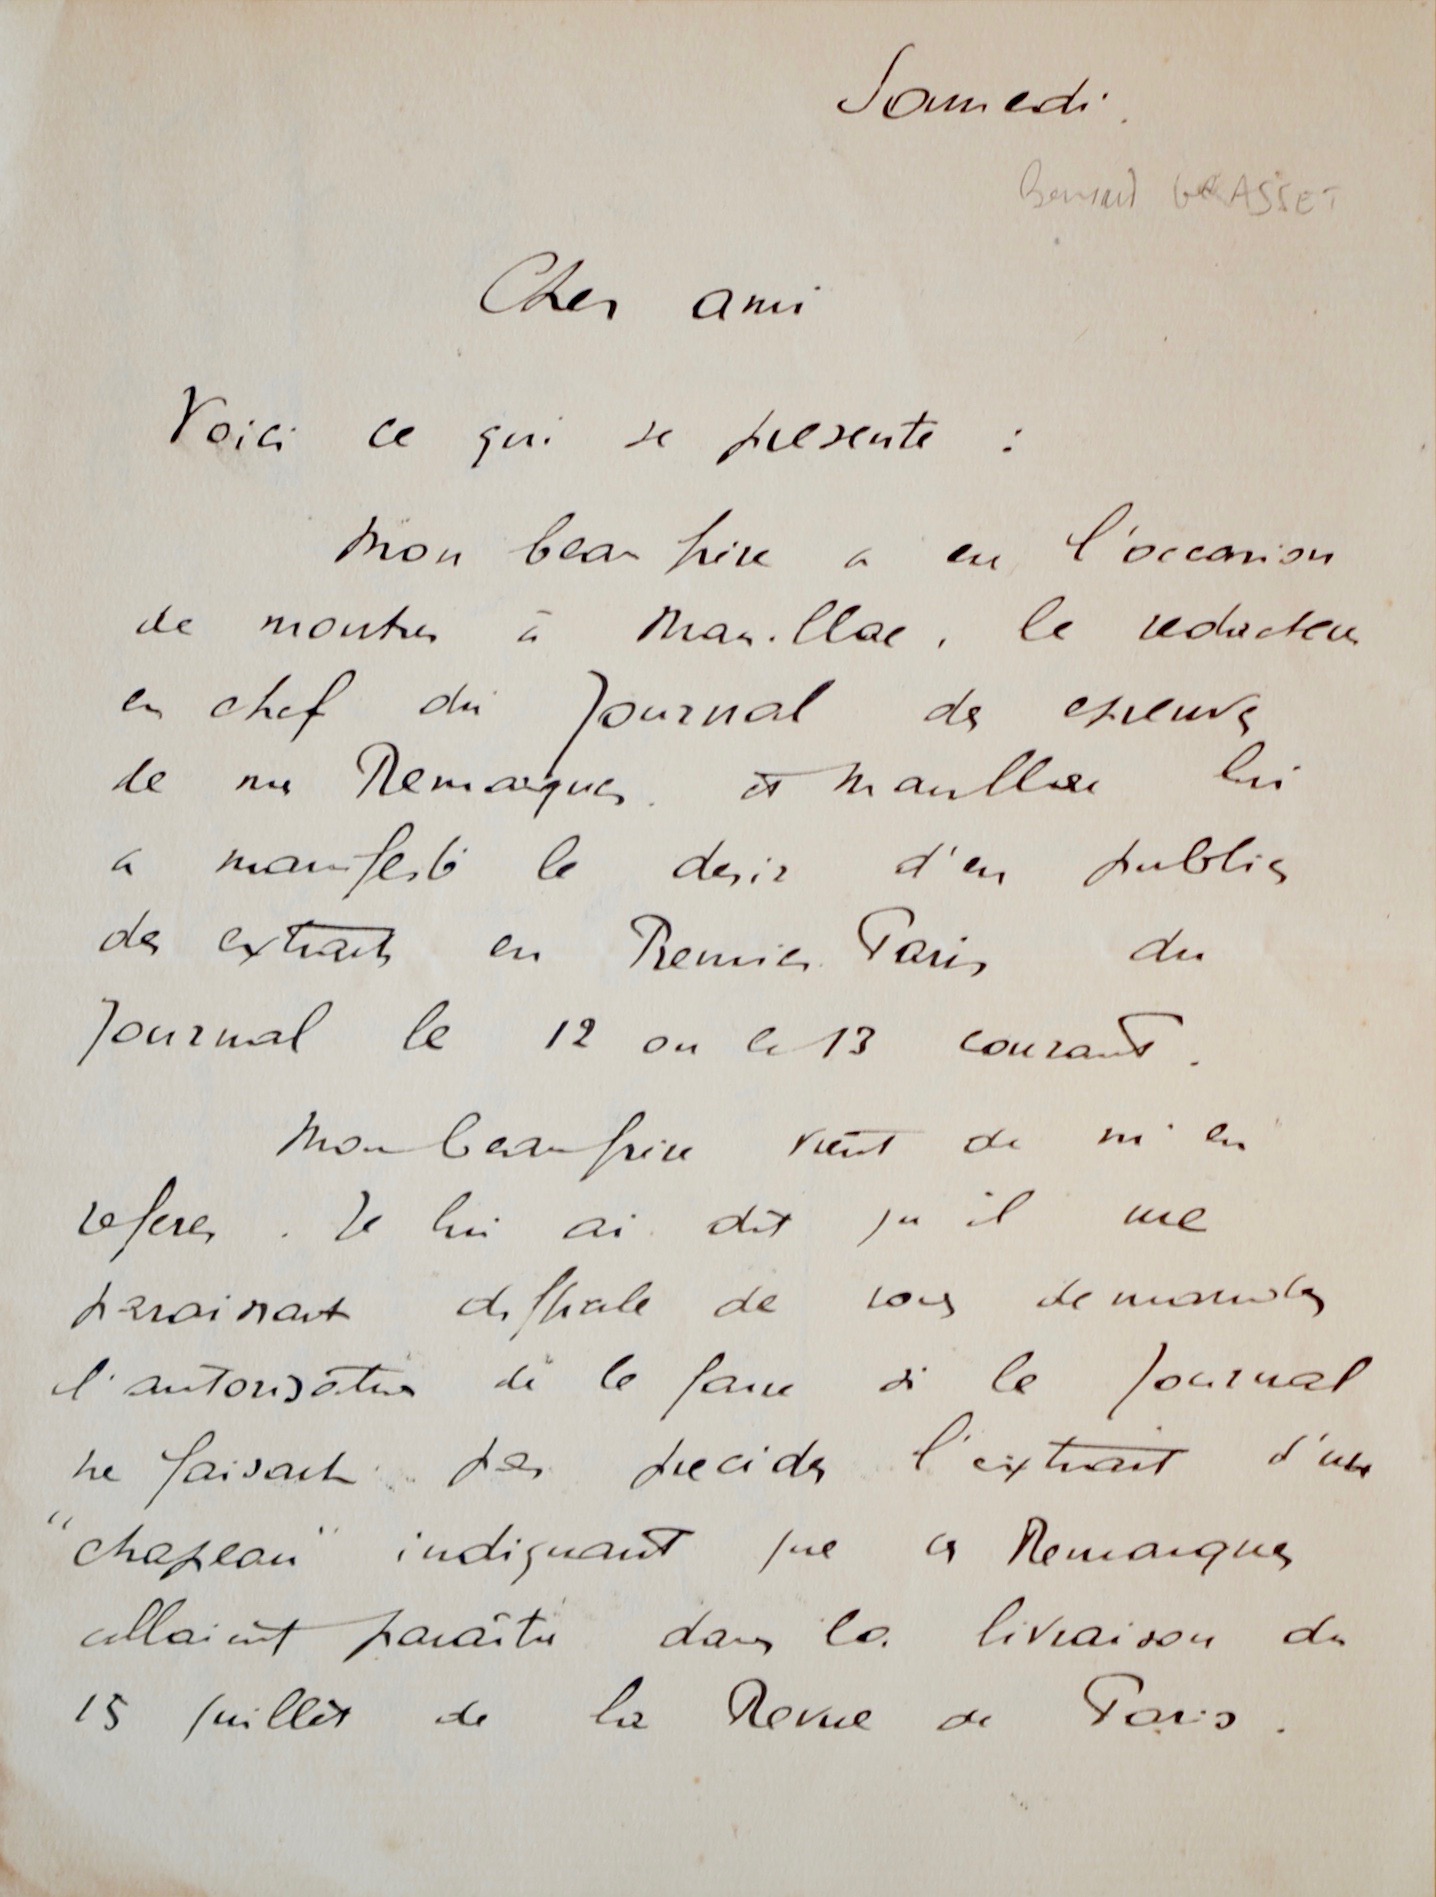 Samedi.
Bernard GRASSET
Cher ami
Voici ce qui se presente :
Mon beau frère a eu l'occasion
de montrer à Marsillac, le redacteur
en chef du Journal des epreuves
de mes Remarques. et Marsillac lui
a manifesté le desir d'en publier
des extraits en Premier Paris du
Journal le 12 ou le 13 courant.
Mon beau frère vient de m'en
referer. Je lui ai dit qu'il me
paraissait difficile de vous demander
l'autorisation de le faire si le Journal
ne faisait pas preceder l'extrait d'un
"chapeau" indiquant que ces Remarques
allaient paraître dans la livraison du
15 juillet de la Revue de Paris.